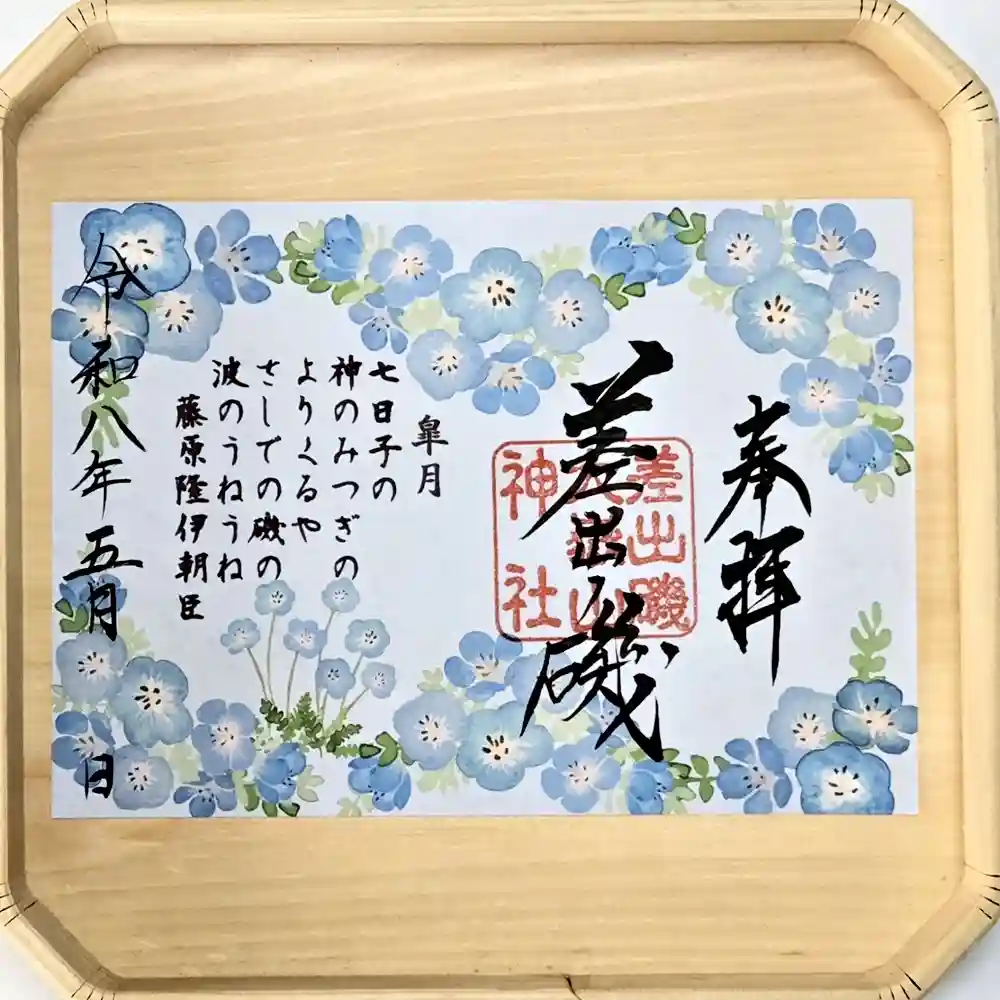 奉拝
差出ノ磯
差出磯
大嶽山
神社
皐月
七日子の
神のみつぎの
よりくるや
さしでの磯の
波のうねうね
藤原隆伊朝臣
令和八年五月 日